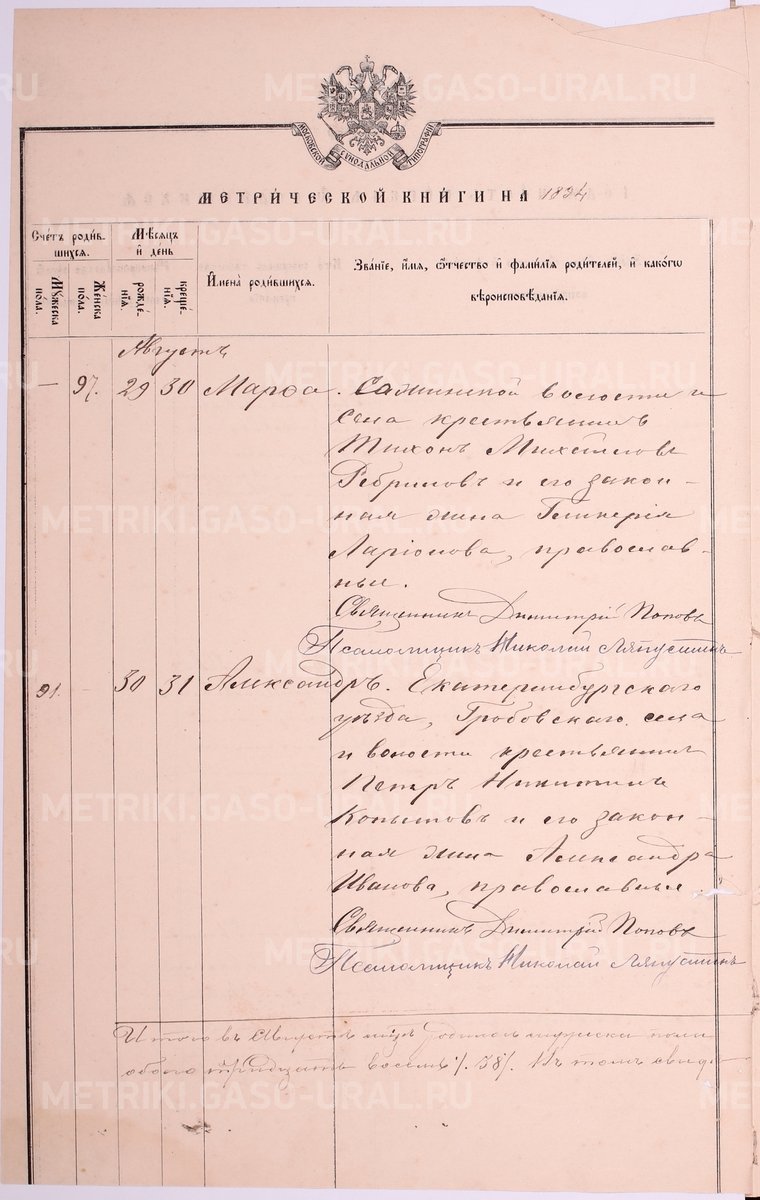 METRIKI.GASO-URAL.RU
МОСКОВСКОЙ СѴНОДАЛЬНОЙ ТИПОГРАФІИ
МЕТРИ́ЧЕСКОЙ КНИ́ГИ НА 1894
Сче́тъ роди́вшихся.
Му́жеска по́ла.
Же́нска по́ла.
Мѣ́сяцъ и҆ де́нь
рожде́нїѧ.
креще́нїѧ.
И҆мена̀ роди́вшихся.
Зва́нїе, и҆́мѧ, ѻ҆́тчество и҆ фами́лїѧ роди́телей, и҆ како́гѡ вѣроисповѣ́данїѧ.
Августъ
— 97. 29 30 Марѳа. волости и
села крестьянинъ
Тихонъ
и его закон-
ная жена Гликерія
Ларіонова, православ-
ные.
Священникъ Димитрій Поповъ
Псаломщикъ Николай Ляпустинъ
91. - 30 31 Александръ. Екатеринбургскаго
уѣзда, Гробовскаго села
и волости крестьянинъ
Петръ Никитинъ
Копытовъ и его закон-
ная жена Александра
Иванова, православные.
Священникъ Димитрій Поповъ
Псаломщикъ Николай Ляпустинъ
Итого въ Августѣ родилось мужеска пола
обоего тридцать восемь /. 38/. Въ томъ